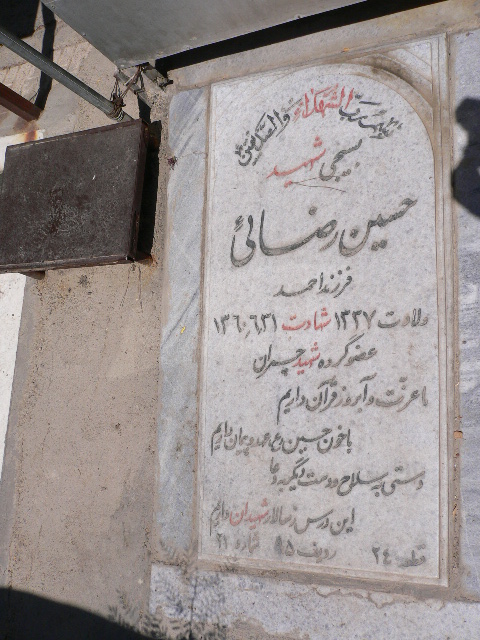 بسم رب الشهداء و الصدیقین
بسیجی شهید
حسین رضائی
فرزند احمد
ولادت ۱۳۳۷ شهادت ۱۳۶۰٫۶٫۳۱
عضو گروه شهید چمران
ما عزت و آبرو ز قرآن داریم
با خون حسین (ع) عهد و پیمان داریم
دستی به سلاح و دست دیگر به دعا
این درس ز سالار شهیدان داریم
قطعه ۲۴ ردیف ۹۵ شماره ۲۱